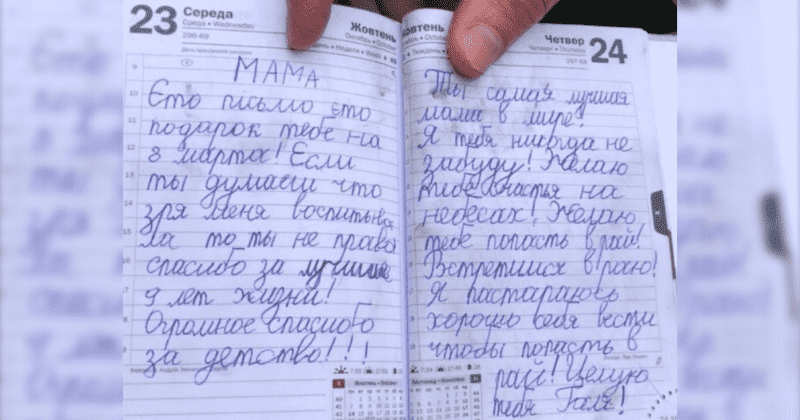 23 Середа
Среда • Wednesday
296-69
Жовтень
Октябрь • October
МАМА
Єто пісьмо єто
подарок тебе на
8 марта! Если
ты думаєш что
зря меня воспитыва
ла то ты не права
спасибо за лучшие
9 лет жизни!
Огромное спасибо
за детство!!!
Жовтень
Четвер 24
Четверг • Thursday
297-68
Ты самая лучшая
мама в мире!
Я тебя никогда не
забуду! Желаю
тебе счастья на
небесах! Желаю
тебе попасть в рай!
Встретимся в раю!
Я пастараюсь
хорошо себя вести
чтобы попасть в
рай! Целую
тебя Галя!